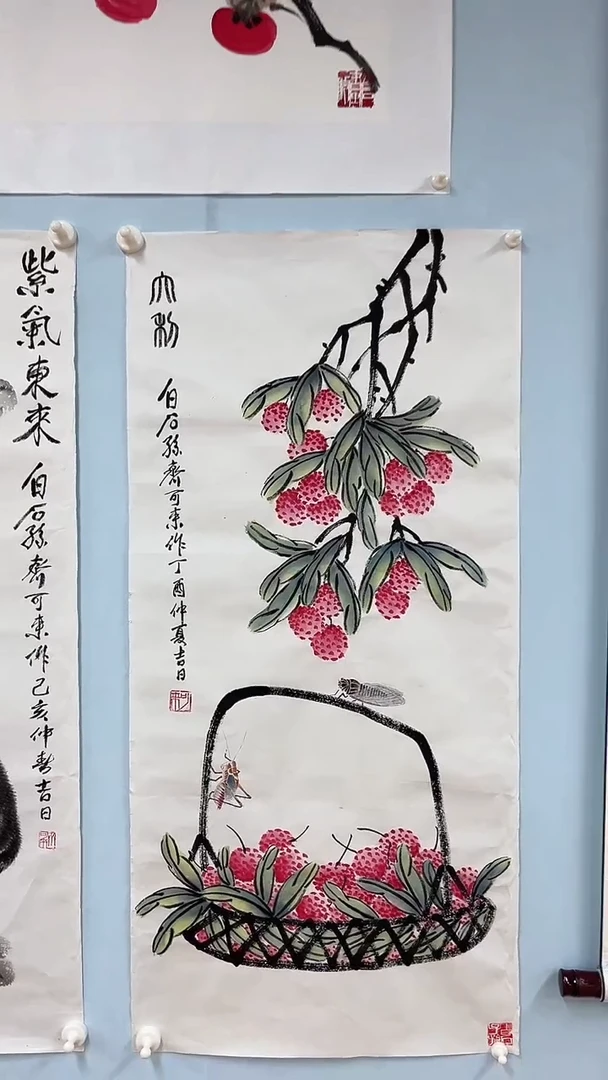 大利
白石孫齊可来作丁酉仲夏吉日
紫氣東来
白石孫齊可来作己亥仲春吉日